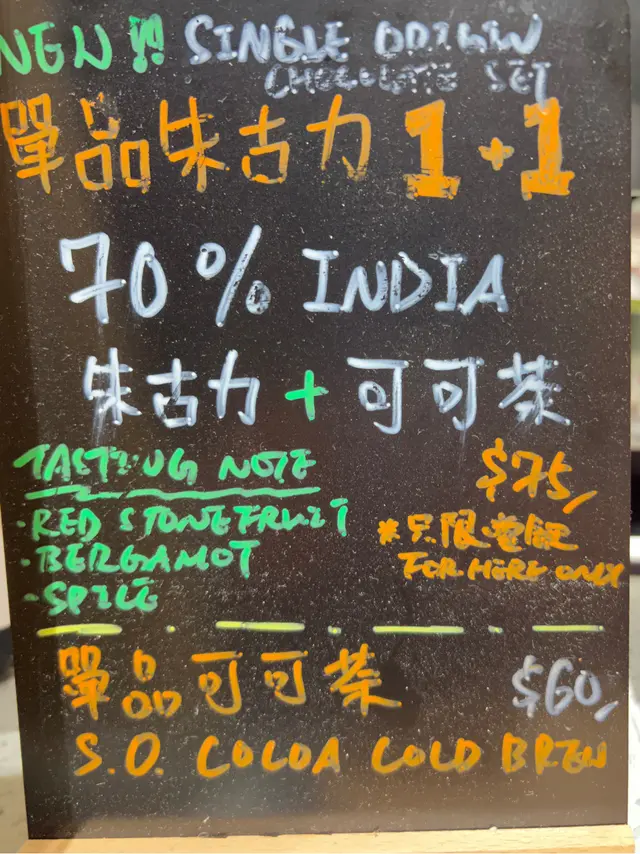 NEW!!! SINGLE ORIGIN
CHOCOLATE SET
單品朱古力 1+1
70% INDIA
朱古力 + 可可茶
TASTING NOTE
· RED STONEFRUIT
· BERGAMOT
· SPICE
$75
*只限堂飲
FOR HERE ONLY
單品可可茶 $60
S.O. COCOA COLD BREW